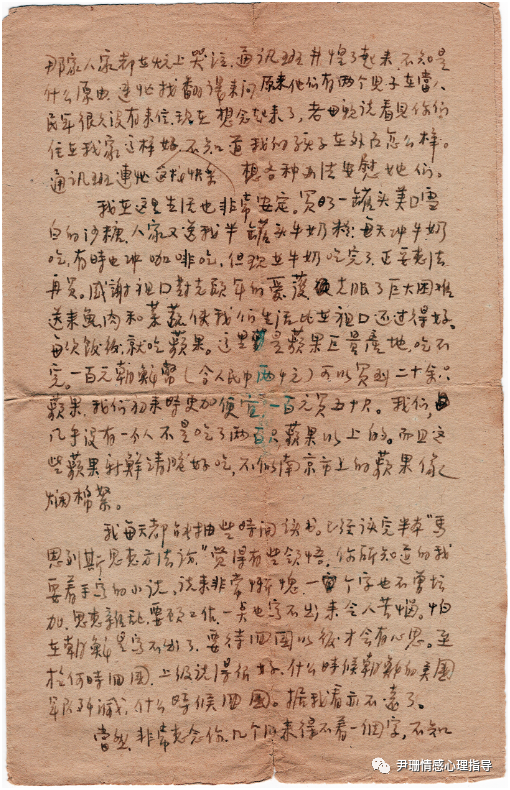 那家人家都在炕上哭泣,通讯班井惶了起来,不知是
什么原由,连忙找翻譯来问,原来他们有两个兒子在當人
民军很久没有来信,现在想念起来了,老母親说看見你们
住在我家这样好,不知道我的孩子在外面怎么样。
通讯班連忙 想各种办法安慰她们。
我在这里生活也非常安定。買了一罐头美口雪
白的沙糖,人家又送我半罐头牛奶粉,每天冲牛奶
吃,有時也冲咖啡吃,但现在牛奶吃完了,正要想法
再買。感謝祖口對志願军的爱護,克服了巨大困难
送来魚肉和菜蔬,使我们生活比在祖口还过得好。
每次飯後,就吃蘋果。这里是蘋果巨量產地,吃不
完。一百元朝鮮幣(合人民币两千元)可以買到二十余只
蘋果,我们初来時更加便宜,一百元買五十只。我们,
几乎没有一个人不是吃了两百只蘋果以上的。而且这
些蘋果新鮮清脆好吃,不似南京市上的蘋果像
烟棉絮。
我每天都能抽些時间读书。已经读完半本"馬
恩列斯思想方法论",觉得有些領悟。你所知道的我
要着手写的小说,说来非常慚愧,一个字也不曾增
加,思想雜乱,要顾工作,一点也写不出来,令人苦惱。怕
在朝鮮是写不出了,要待囬國以後才会有心思。至
於何時囬國,上级说得很好,什么時候朝鮮的美國
军队歼滅,什么時候囬國。据我看亦不遠了。
當然,非常想念你,几个月来得不着一個字,不知
尹珊情感心理指导